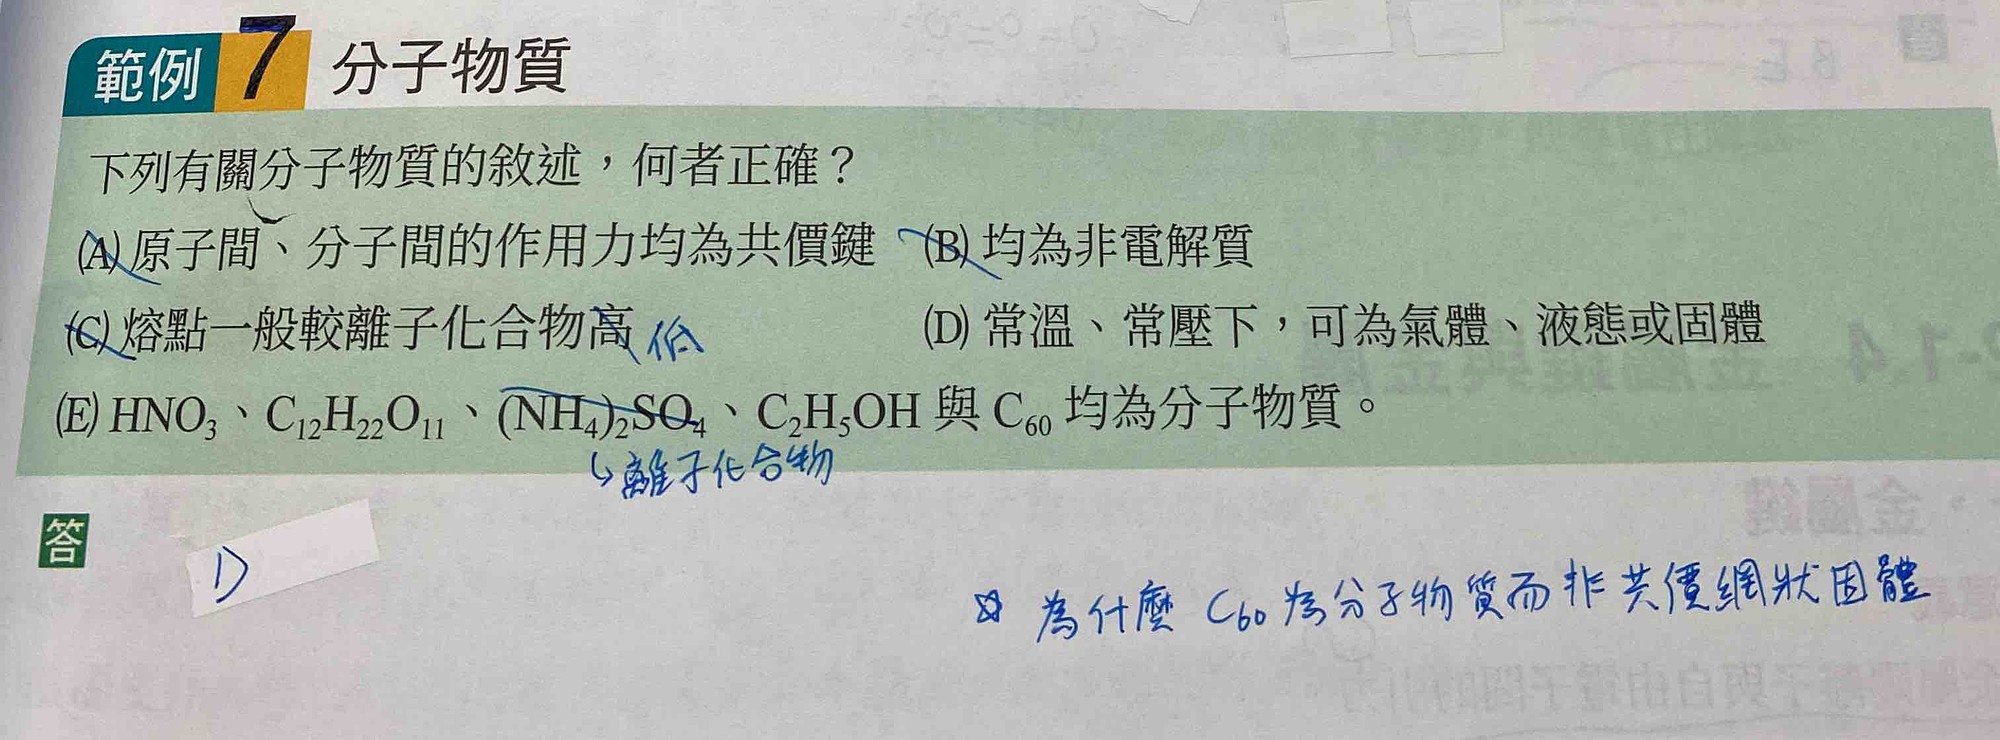 範例 7 分子物質
下列有關分子物質的敘述，何者正確？
(A) 原子間、分子間的作用力均為共價鍵 (B) 均為非電解質
(C) 熔點一般較離子化合物高 低 (D) 常溫、常壓下，可為氣體、液態或固體
(E) HNO₃、C₁₂H₂₂O₁₁、(NH₄)₂SO₄、C₂H₅OH 與 C₆₀ 均為分子物質。
↳離子化合物
答
D
為什麼 C₆₀ 為分子物質而非共價網狀固體